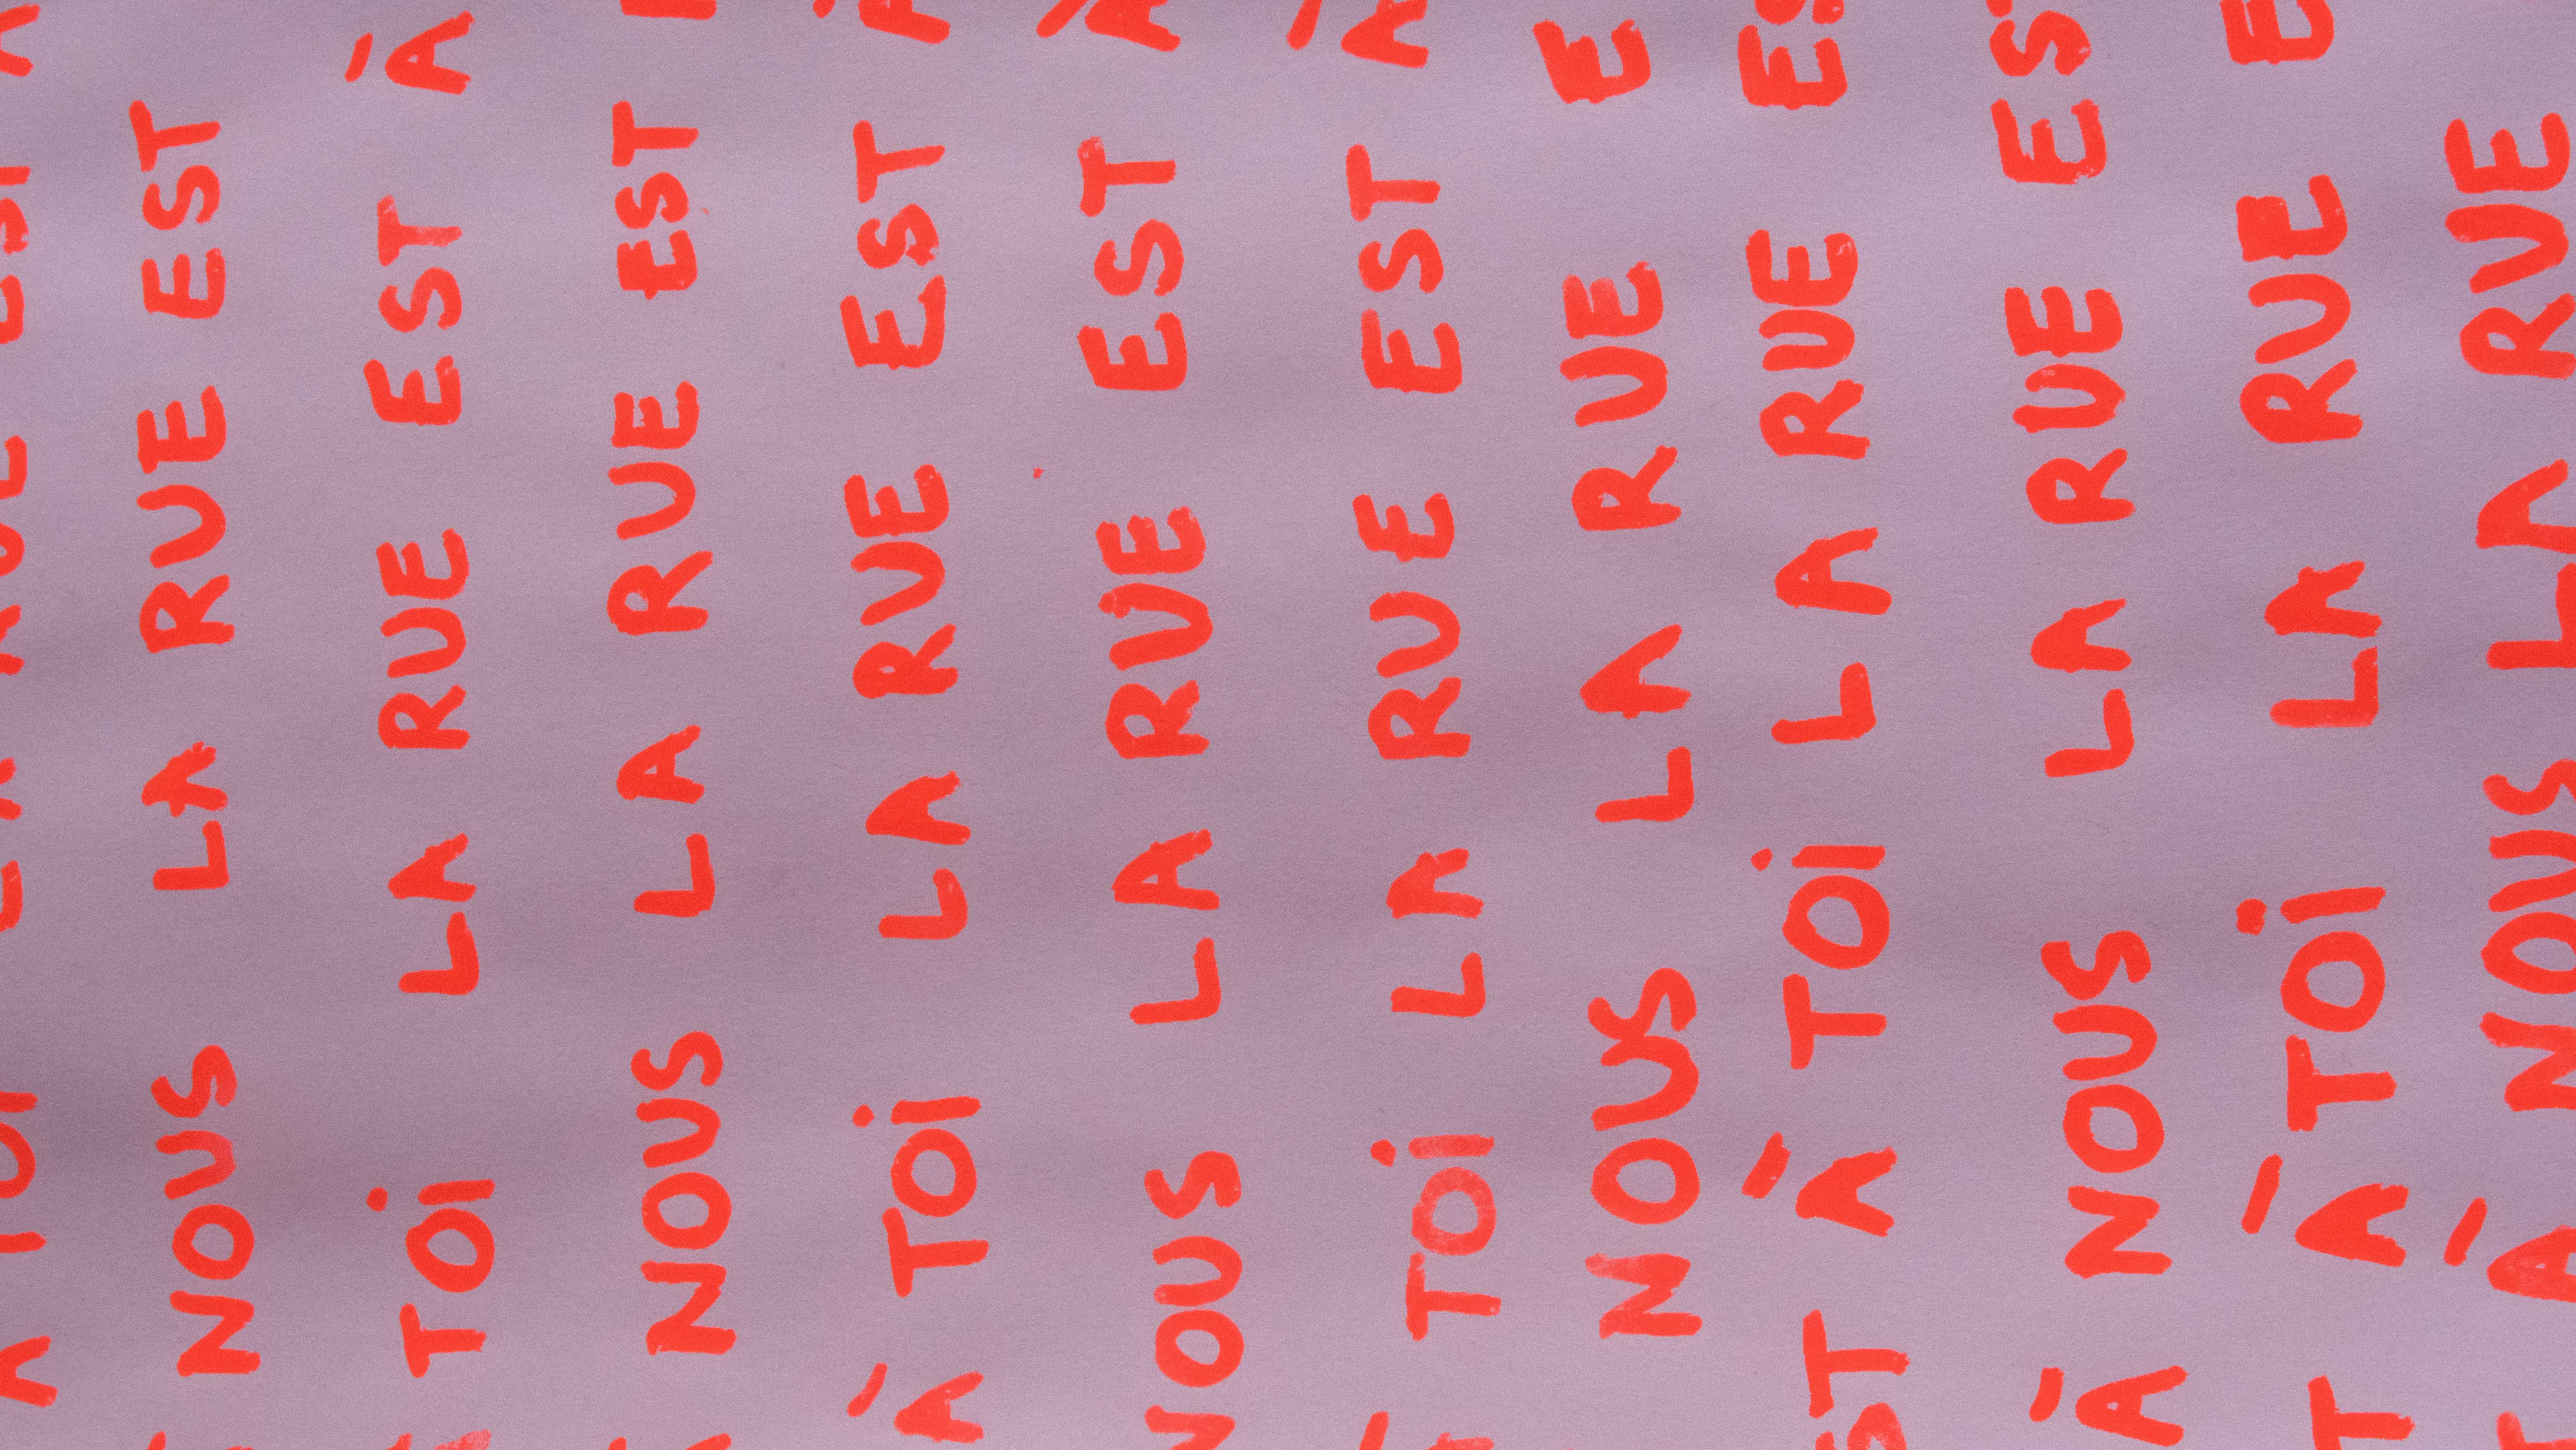 À TOI LA RUE EST À
NOUS LA RUE EST
À TOI LA RUE EST À
NOUS LA RUE EST
À TOI LA RUE EST À
NOUS LA RUE EST À
À TOI LA RUE EST À
NOUS LA RUE E
ST À TOI LA RUE ES
À NOUS LA RUE ES
T À TOI LA RUE E
À NOUS LA RUE